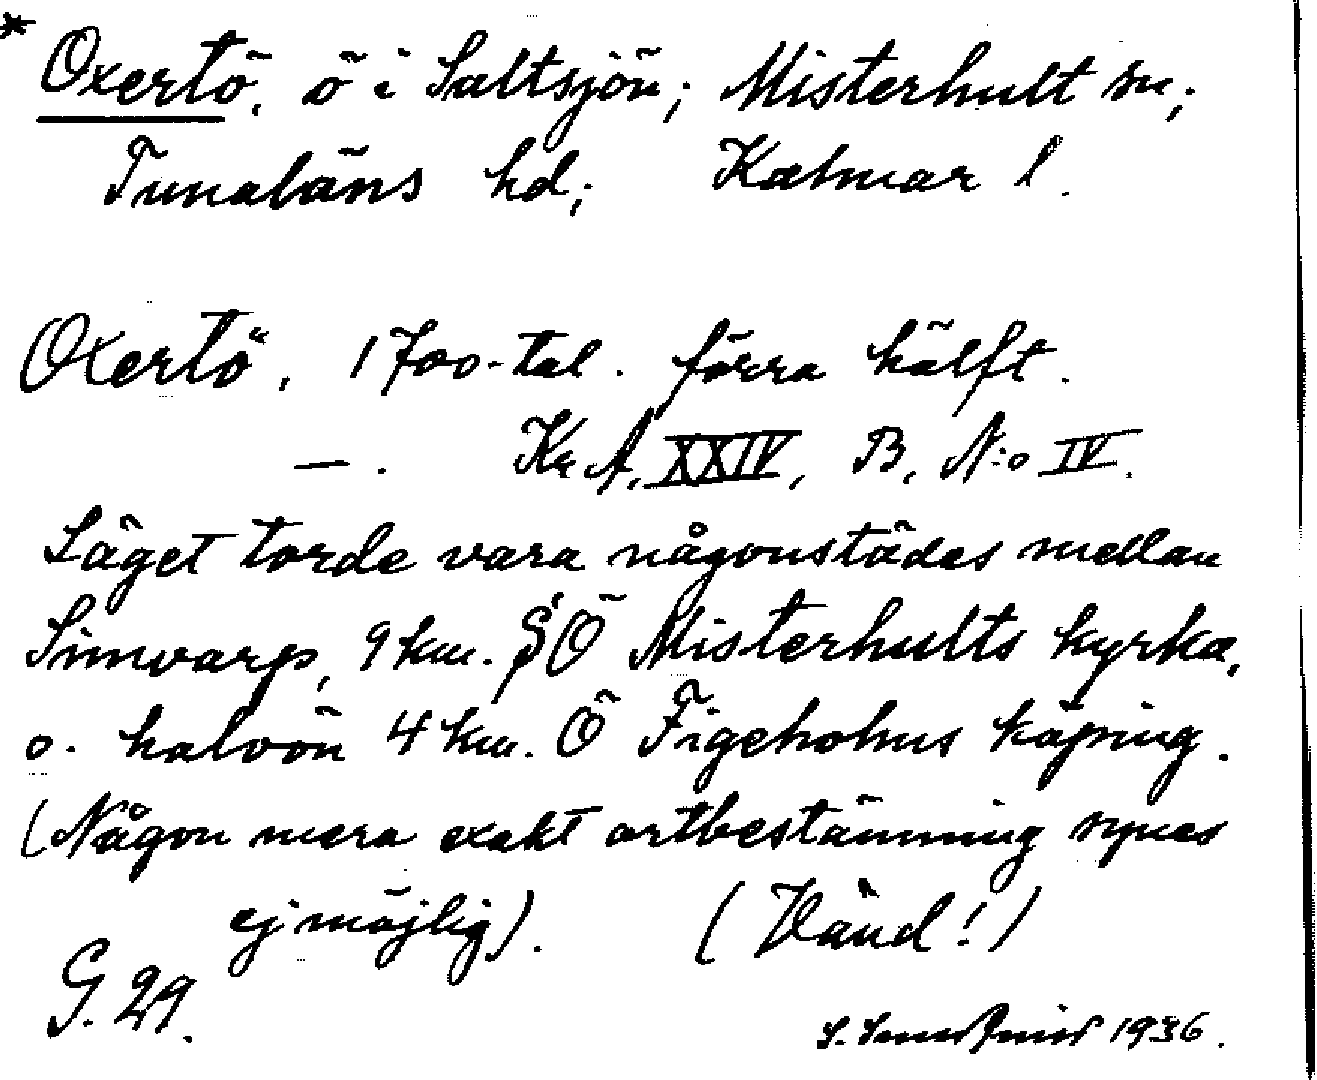 * Oxertö, ö i Saltsjön; Misterhult sn;
Tunaläns hd; Kalmar l.
Oxertö, 1700-tal. förra hälft.
— . Kr A, XXIV, B, N:o IV.
Läget torde vara någonstädes mellan
Simvarp, 9 km. SÖ Misterhults kyrka,
o. halvön 4 km. Ö Figeholms köping.
(Någon mera exakt ortbestämning synes
ej möjlig). (Vänd!)
G. 29.
S. 1936.